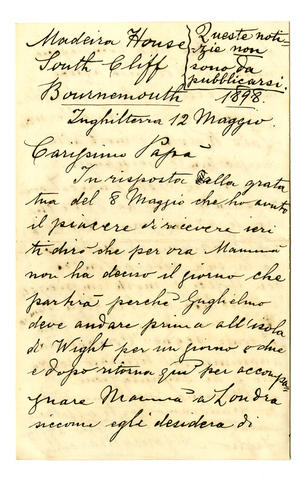 Madeira House
South Cliff
Bournemouth 1898.
Queste noti-
zie non
sono da
pubblicarsi.
Inghilterra 12 Maggio.
Carissimo Papà
In risposta alla grata
tua del 8 Maggio che ho avuto
il piacere di ricevere ieri
ti dirò che per ora Mammà
non ha deciso il giorno che
partirà perchè Guglielmo
deve andare prima all'isola
di Wight per un giorno o due
e dopo ritorna qui per accompa-
gnare Mammà a Londra
siccome egli desidera di